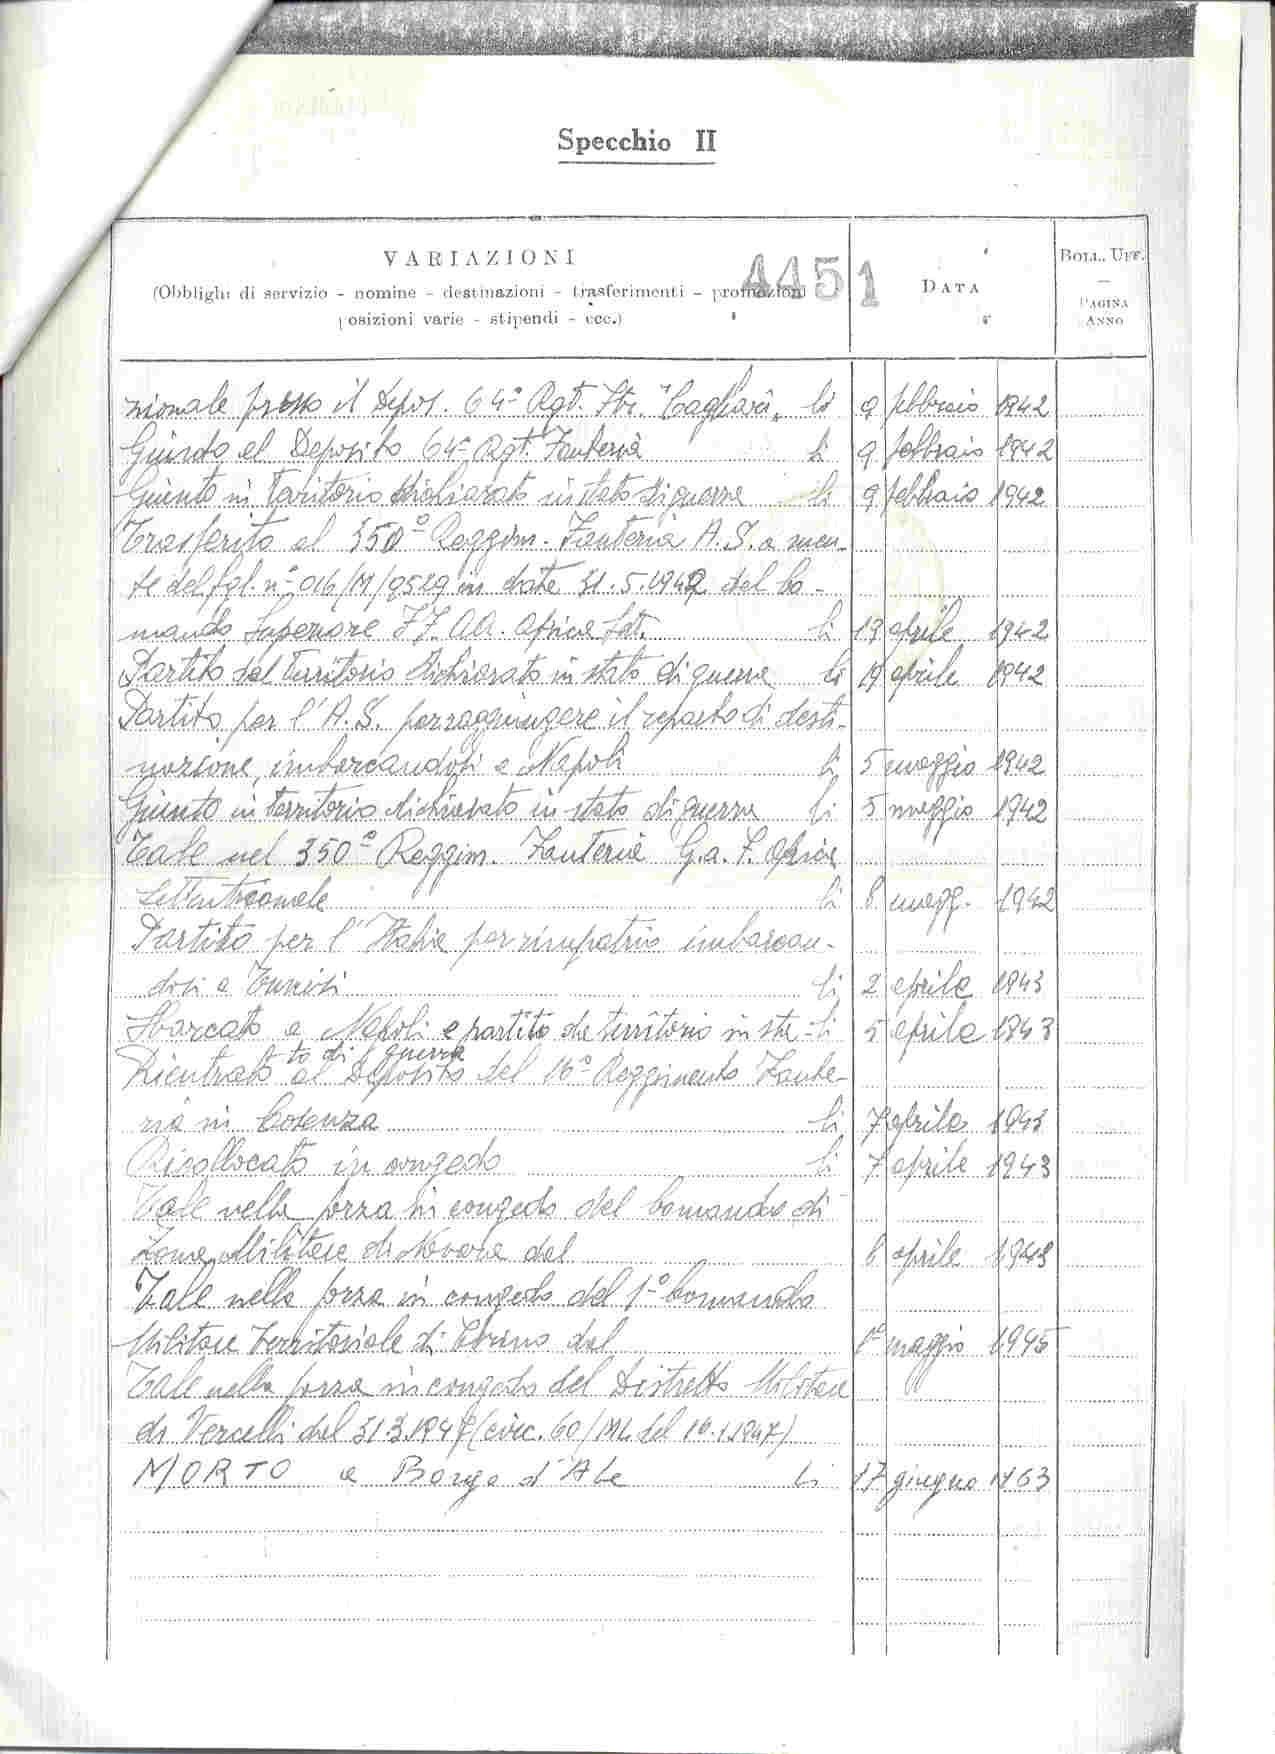 Specchio II
VARIAZIONI
(Obblighi di servizio - nomine - destinazioni - trasferimenti - promozioni
posizioni varie - stipendi - ecc.)
4451
DATA
BOLL. UFF.
PAGINA
ANNO
zionale presso il Depos. 64° Rgt. Ftr. "Cagliari" li 9 febbraio 1942
Giunto al Deposito 64° Rgt. Fanteria li 9 febbraio 1942
Giunto in territorio dichiarato in stato di guerra li 9 febbraio 1942
Trasferito al 350° Reggim. Fanteria A.S. a men-
te del fgl. n° 016/M/9529 in data 31.5.1942 del Co-
mando Superiore FF. AA. Africa Set. li 19 aprile 1942
Partito dal territorio dichiarato in stato di guerra li 19 aprile 1942
Partito per l'A.S. per raggiungere il reparto di desti-
nazione, imbarcandosi a Napoli li 5 maggio 1942
Giunto in territorio dichiarato in stato di guerra li 5 maggio 1942
Tale nel 350° Reggim. Fanteria G.a.F. Africa
Settentrionale li 8 magg. 1942
Partito per l'Italia per rimpatrio imbarcan-
dosi a Tunisi li 2 aprile 1943
Sbarcato a Napoli e partito da territorio in sta- li 5 aprile 1943
to di guerra
Rientrato al Deposito del 16° Reggimento Fante-
ria in Cosenza li 7 aprile 1943
Ricollocato in congedo li 7 aprile 1943
Tale nella forza in congedo del Comando di
Zona Militare di Novara dal 8 aprile 1943
Tale nella forza in congedo del 1° Comando
Militare Territoriale di Torino dal 1° maggio 1945
Tale nella forza in congedo del Distretto Militare
di Vercelli dal 31.3.1947 (circ. 60/ML del 16.1.1947)
MORTO a Borgo d'Ale li 17 giugno 1963